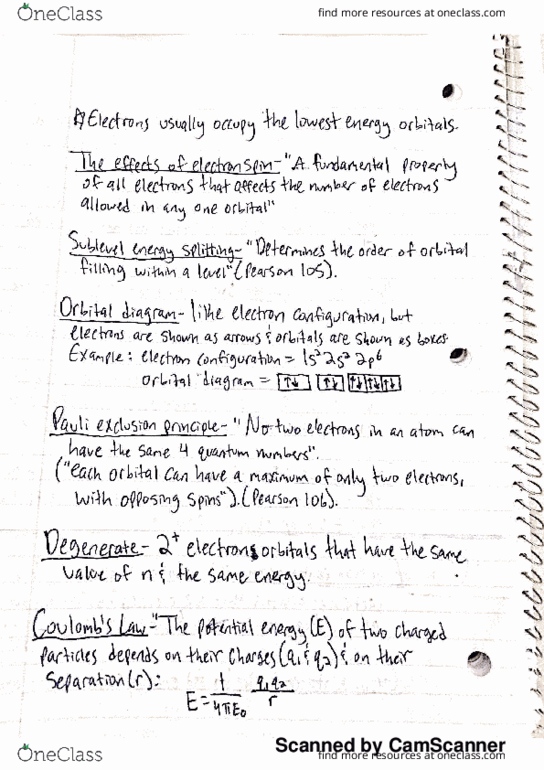 OneClass
find more resources at oneclass.com
☆Electrons usually occupy the lowest energy orbitals.
The effects of electron spin- "A fundamental property
of all electrons that affects the number of electrons
allowed in any one orbital"
Sublevel energy splitting- "Determines the order of orbital
filling within a level" (Pearson 105).
Orbital diagram- like electron configuration, but
electrons are shown as arrows & orbitals are shown as boxes.
Example: electron configuration = 1s² 2s² 2p⁶
orbital diagram = [↑↓] [↑↓] [↑↓][↑↓][↑↓]
Pauli exclusion principle- "No two electrons in an atom can
have the same 4 quantum numbers".
("each orbital can have a maximum of only two electrons,
with opposing spins"). (Pearson 106).
Degenerate- 2⁺ electrons orbitals that have the same
value of n & the same energy.
Coulomb's Law- "The potential energy (E) of two charged
particles depends on their charges (q₁ & q₂) & on their
separation (r):
E = 1/4πε₀ q₁q₂/r
Scanned by CamScanner
OneClass
find more resources at oneclass.com